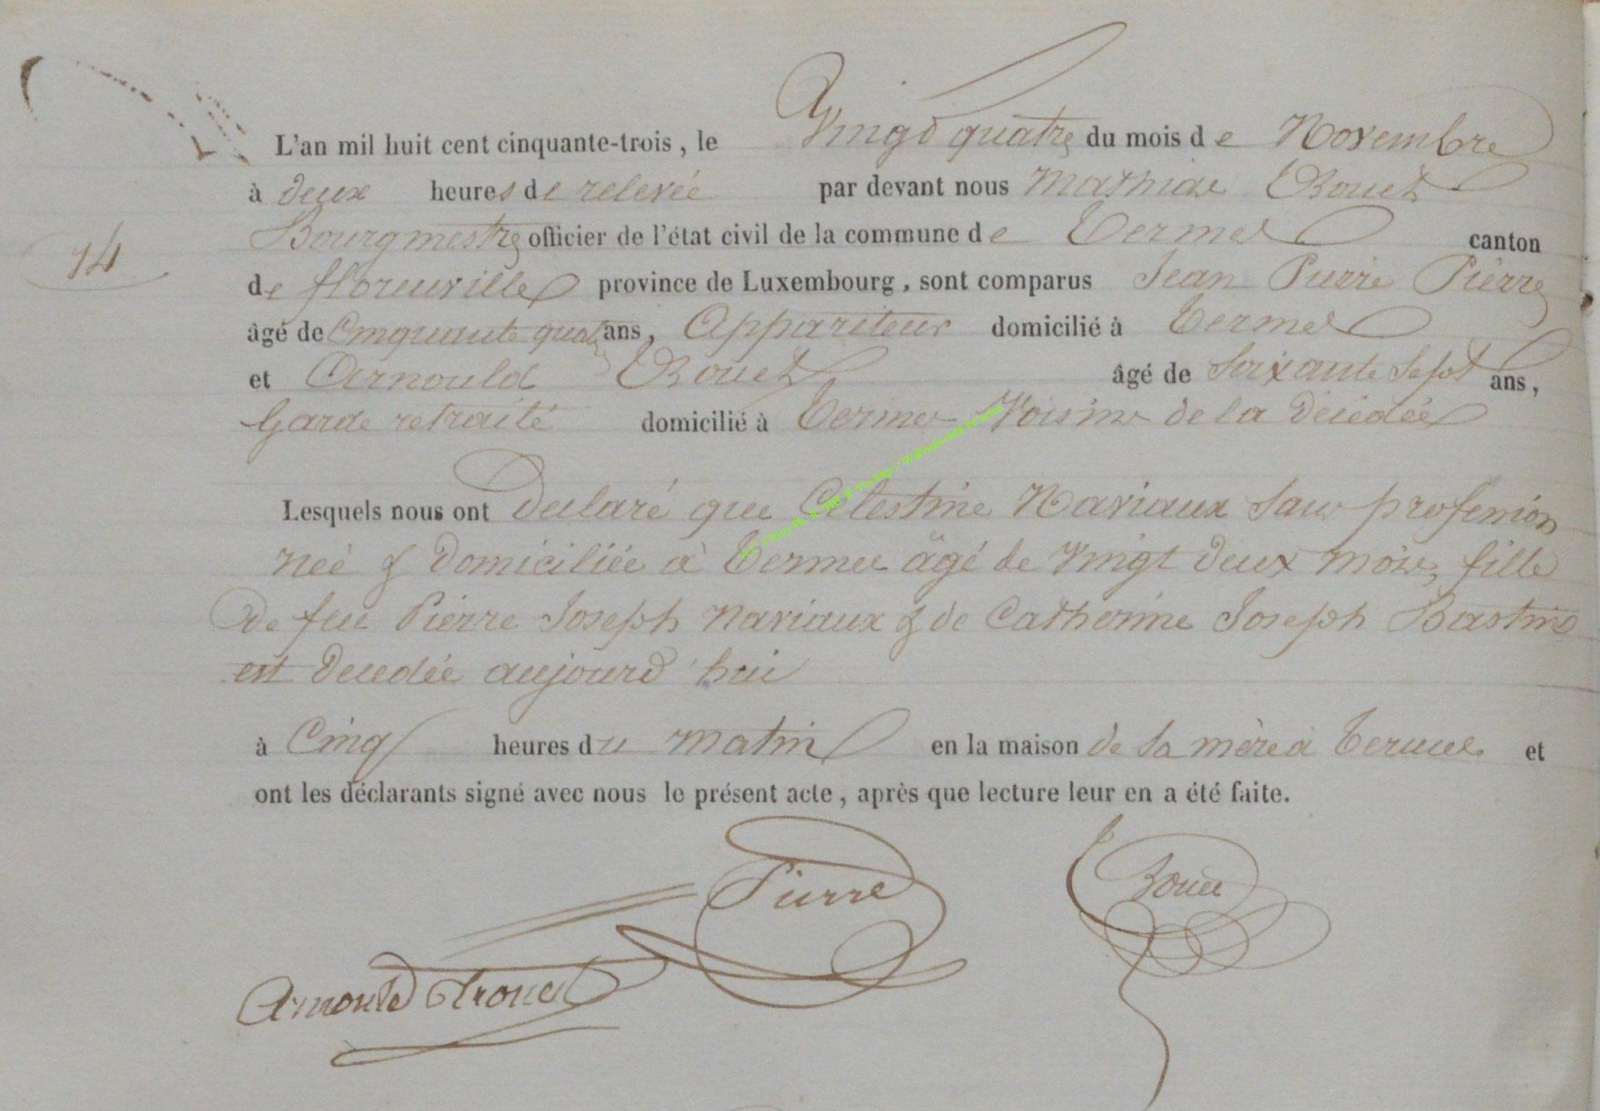 L'an mil huit cent cinquante-trois, le Vingt quatre du mois de Novembre
à deux heures de relevée par devant nous Mathias Rouet
Bourgmestre officier de l'état civil de la commune de Termes canton
14
de florenville province de Luxembourg, sont comparus Jean Pierre Pierre
âgé de Cinquante quatre ans, Appariteur domicilié à Termes
et Arnould Rouet âgé de Soixante Sept ans,
Garde retraité domicilié à Termes Voisins de la décédée
Lesquels nous ont declaré que Celestine Naviaux Sans profession
née & domiciliée à Termes âgé de Vingt deux mois, fille
de feu Pierre Joseph Naviaux & de Catherine Joseph Bastin
est decedée aujourd'hui
à Cinq heures du matin en la maison de sa mère à Termes et
ont les déclarants signé avec nous le présent acte, après que lecture leur en a été faite.
Pierre Rouet
Arnould Rouet